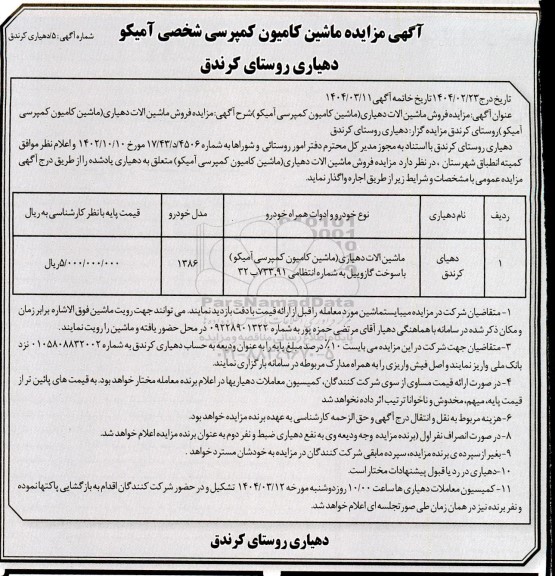 آگهی مزایده ماشین کامیون کمپرسی شخصی آمیکو
شماره آگهی: ۵/دهیاری کرندق
دهیاری روستای کرندق
تاریخ درج ۱۴۰۴/۰۲/۲۳ تاریخ خاتمه آگهی ۱۴۰۴/۰۳/۱۱
عنوان آگهی: مزایده فروش ماشین الات دهیاری (ماشین کامیون کمپرسی آمیکو) شرح آگهی: مزایده فروش ماشین الات دهیاری (ماشین کامیون کمپرسی
آمیکو) روستای کرندق مزایده گزار: دهیاری روستای کرندق
دهیاری روستای کرندق با استناد به مجوز مدیر کل محترم دفتر امور روستائی و شوراها به شماره ۱۷/۴۳/د/۴۵۰۶ مورخ ۱۴۰۲/۱۰/۱۰ و اعلام نظر موافق
کمیته انطباق شهرستان، در نظر دارد مزایده فروش ماشین الات دهیاری (ماشین کامیون کمپرسی آمیکو) متعلق به دهیاری یادشده را از طریق درج آگهی
مزایده عمومی با مشخصات و شرایط زیر از طریق اجاره واگذار نماید.
ردیف نام دهیاری نوع خودرو و ادوات همراه خودرو مدل خودرو قیمت پایه با نظر کارشناسی به ریال
۱ دهیای کرندق ماشین الات دهیاری (ماشین کامیون کمپرسی آمیکو) با سوخت گازوییل به شماره انتظامی ۷۳۳،۹۱ب ۳۲ ۱۳۸۶ ۵/۰۰۰/۰۰۰/۰۰۰ ریال
۱- متقاضیان شرکت در مزایده میبایست ماشین مورد معامله را قبل از ارائه قیمت با دقت بازدید نمایند. می توانند جهت رویت ماشین فوق الاشاره برابر زمان
و مکان ذکر شده در سامانه با هماهنگی دهیار آقای مرتضی حمزه پور به شماره ۰۹۲۲۸۹۰۱۳۲۲ در محل حضور یافته و ماشین را رویت نمایند.
۳- متقاضیان جهت شرکت در این مزایده می بایست ۱۰٪ درصد مبلغ پایه را به عنوان ودیعه به حساب دهیاری کرندق به شماره ۰۱۰۵۸۰۸۸۳۲۰۰۲ نزد
بانک ملی واریز نمایند و اصل فیش واریزی را به همراه مدارک مربوطه در سامانه بارگزاری نمایند.
۴- در صورت ارائه قیمت مساوی از سوی شرکت کنندگان، کمیسیون معاملات دهیاریها در اعلام برنده معامله مختار خواهد بود. به قیمت های پائین تر از
قیمت پایه، مبهم، مخدوش و ناخوانا ترتیب اثر داده نخواهد شد
۶- هزینه مربوط به نقل و انتقال درج آگهی و حق الزحمه کارشناسی به عهده برنده مزایده خواهد بود.
۸- در صورت انصراف نفر اول (برنده مزایده) وجه ودیعه وی به نفع دهیاری ضبط و نفر دوم به عنوان برنده مزایده اعلام خواهد شد.
۹- بغیر از سپرده ی برنده مزایده، سپرده مابقی شرکت کنندگان در مزایده به خودشان مسترد خواهد.
۱۰- دهیاری در رد یا قبول پیشنهادات مختار است.
۱۱- کمیسیون معاملات دهیاری ها ساعت ۱۰/۰۰ روز دوشنبه مورخه ۱۴۰۴/۰۳/۱۲ تشکیل و در حضور شرکت کنندگان اقدام به بازگشایی پاکتها نموده
و نفر برنده نیز در همان زمان طی صورتجلسه ای اعلام خواهد شد.
دهیاری روستای کرندق
ParsNamadData